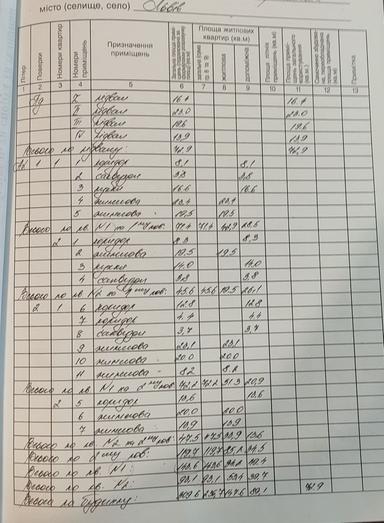 місто (селище, село) Львів
Літер
Поверхи
Номери квартир
Номери приміщень
Призначення приміщень
Площа житлових квартир (кв.м)
житлова
допоміжна
Примітка
1 2 3 4 5 6 7 8 9 10 11 12 13
Пд I підвал 16.4 16.4
II підвал 23.0 23.0
III підвал 19.6 19.6
IV підвал 13.9 13.9
Всього по підвалу: 72.9 72.9
1 1 1 коридор 8,1 8,1
2 санвузол 3.8 3.8
3 кухня 16.6 16.6
4 житлова 23.4 23.4
5 житлова 19.5 19.5
Всього по кв. N1 по 1му пов: 71.4 71.4 42.9 28.5
2 1 коридор 8.3 8.3
2 житлова 19.5 19.5
3 кухня 14.0 14.0
4 санвузол 3.8 3.8
Всього по кв. N2 по 1му пов: 45.6 45.6 19.5 26.1
2 1 6 коридор 12.8 12.8
7 коридор 4.4 4.4
8 санвузол 3.7 3.7
9 житлова 23.1 23.1
10 житлова 20.0 20.0
11 житлова 8.2 8.2
Всього по кв. N1 по 2му пов: 72.2 72.2 51.3 20.9
2 5 коридор 13.6 13.6
6 житлова 20.0 20.0
7 житлова 13.9 13.9
Всього по кв. N2 по 2му пов: 47.5 47.5 33.9 13.6
Всього по 2му пов: 119.7 119.7 85.2 34.5
Всього по кв. N1: 143.6 143.6 94.2 49.4
Всього по кв. N2: 93.1 93.1 53.4 39.7
Всього по будинку: 309.6 236.7 147.6 89.1 72.9